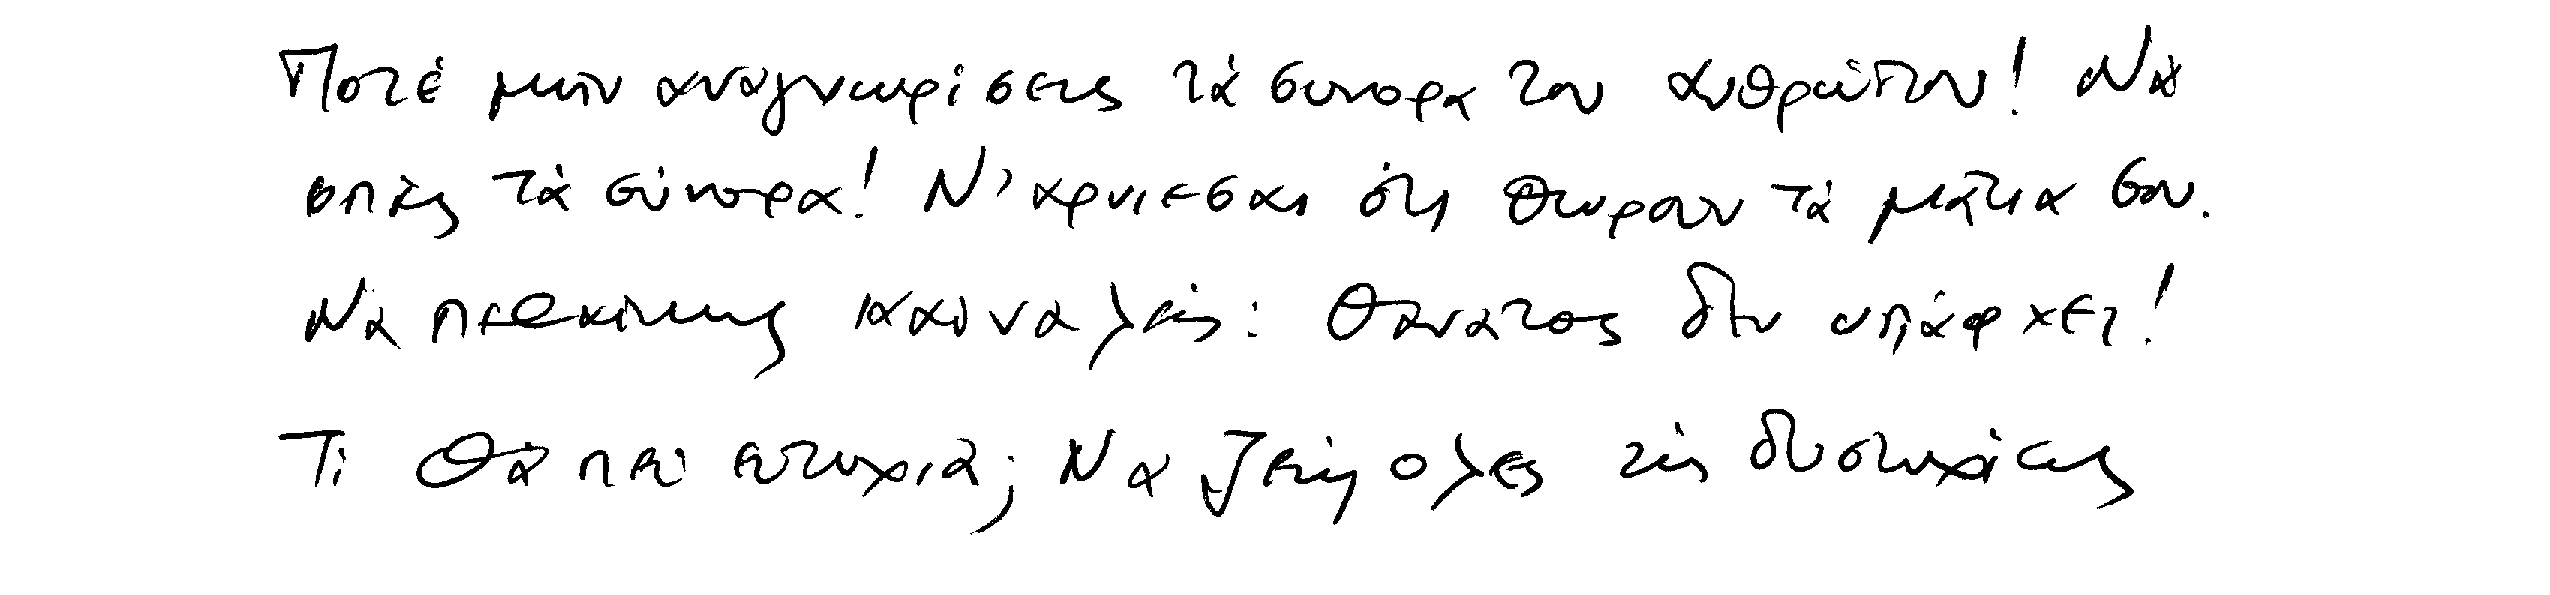 Ποτέ μην αναγνωρίσεις τά συνορα του ανθρώπου! Νά
σπάς τά σύνορα! Ν' αρνιεσαι ότι θωρουν τά μάτια σου.
Να πεθαίνεις και να λές: θανατος δεν υπάρχει!
Τι θά πει ευτυχιά; Να ζείς ολες τίς δυστυχίες